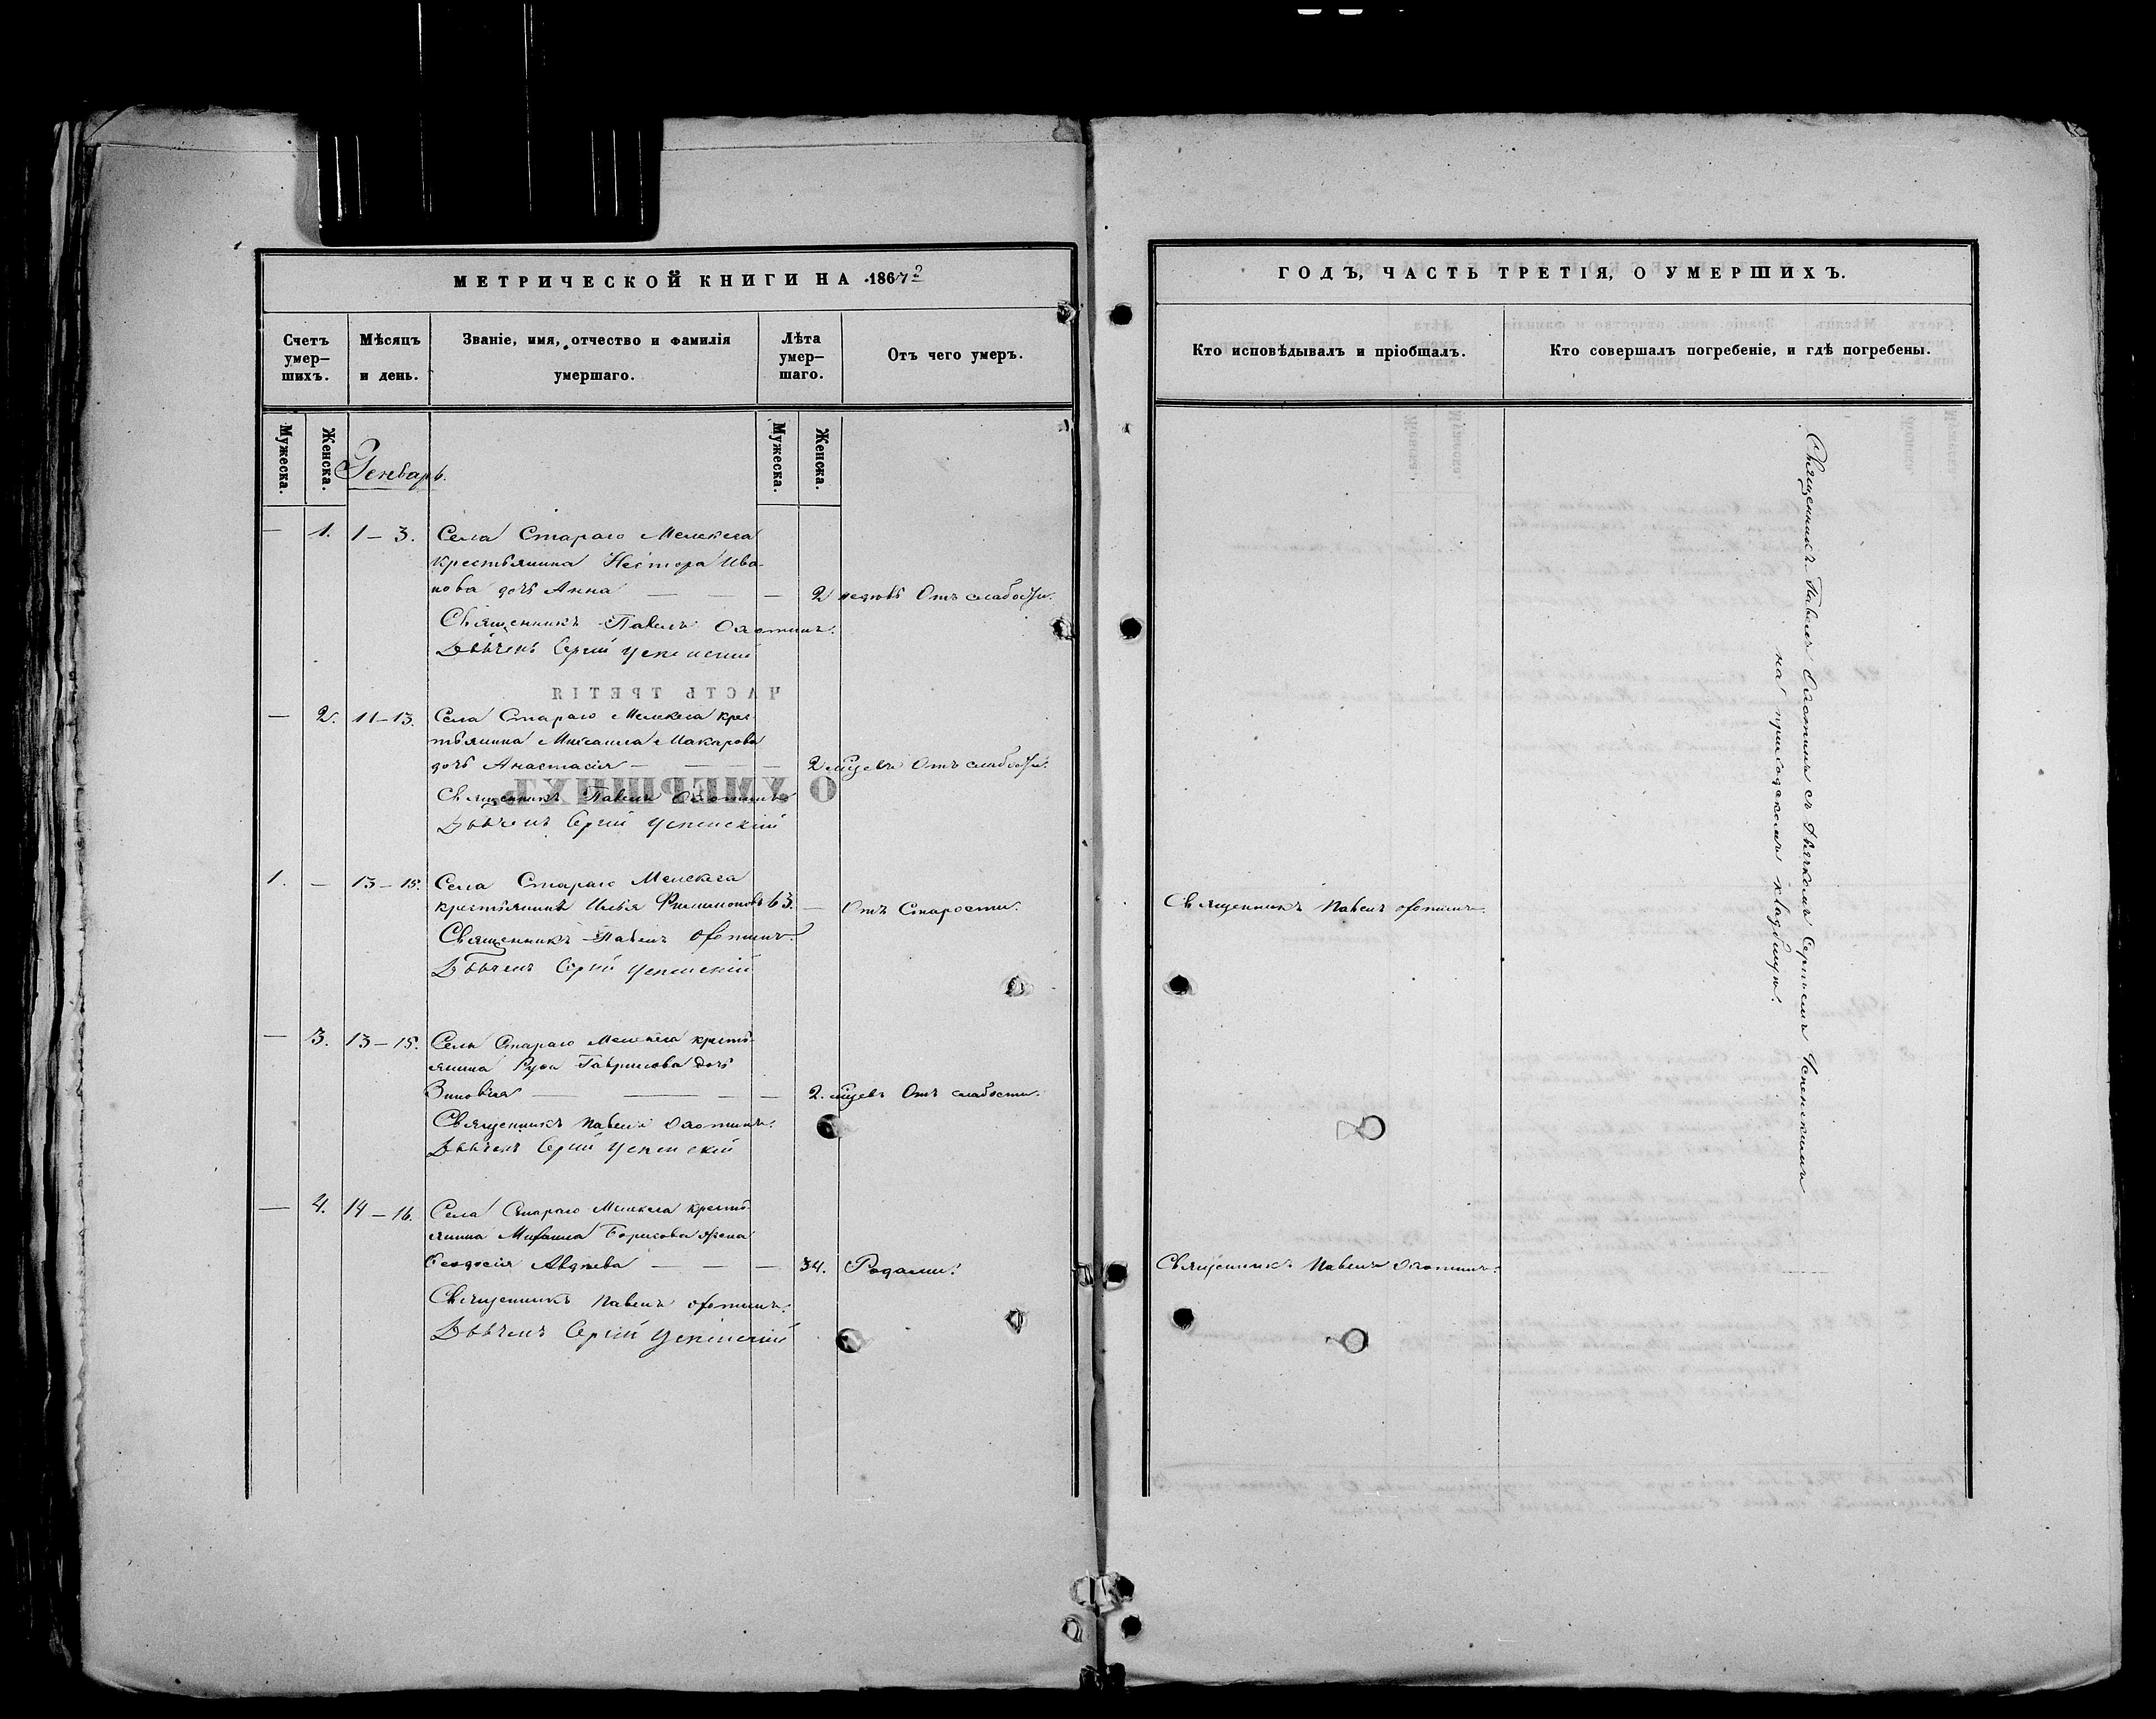 МЕТРИЧЕСКОЙ КНИГИ НА 1867й
Счетъ умер-шихъ.
Мѣсяцъ и день.
Званіе, имя, отчество и фамилія умершаго.
Лѣта умер-шаго.
Отъ чего умеръ.
Мужеска.
Женска.
Мужеска.
Женска.
Генварь.
— 1. 1–3. Села Стараго Мелекеса
крестьянина Нестора Ива-
нова дочь Анна — — — 2 недѣль Отъ слабости.
Священникъ Павелъ Охотинъ.
Дьячекъ Сергій Успенскій
ЧАСТЬ ТРЕТІЯ
— 2. 11–13. Села Стараго Мелекеса крес-
тьянина Михаила Макарова
дочь Анастасія — — — 2 мѣсцевъ Отъ слабости.
О УМЕРШИХЪ.
Священникъ Павелъ Охотинъ
Дьячекъ Сергій Успенскій
1. — 13–15. Села Стараго Мелекеса
крестьянинъ Илья Филимоновъ 63. — Отъ Старости.
Священникъ Павелъ Охотинъ.
Дьячекъ Сергій Успенскій
— 3. 13–15. Села Стараго Мелекеса кресть-
янина Руфа Гаврилова дочь
Зиновія — — — — 2. мѣсцевъ Отъ слабости.
Священникъ Павелъ Охотинъ.
Дьячекъ Сергій Успенскій
— 4. 14–16. Села Стараго Мелекеса кресть-
янина Михаила Борисова жена
Феодосія Авдѣева — — — 34. Родами.
Священникъ Павелъ Охотинъ.
Дьячекъ Сергій Успенскій
ГОДЪ, ЧАСТЬ ТРЕТІЯ, О УМЕРШИХЪ.
Кто исповѣдывалъ и пріобщалъ.
Кто совершалъ погребеніе, и гдѣ погребены.
Священникъ Павелъ Охотинъ.
Священникъ Павелъ Охотинъ.
Священникъ Павелъ Охотинъ съ дьячкомъ Сергіемъ Успенскимъ
на приходскомъ кладбищѣ.